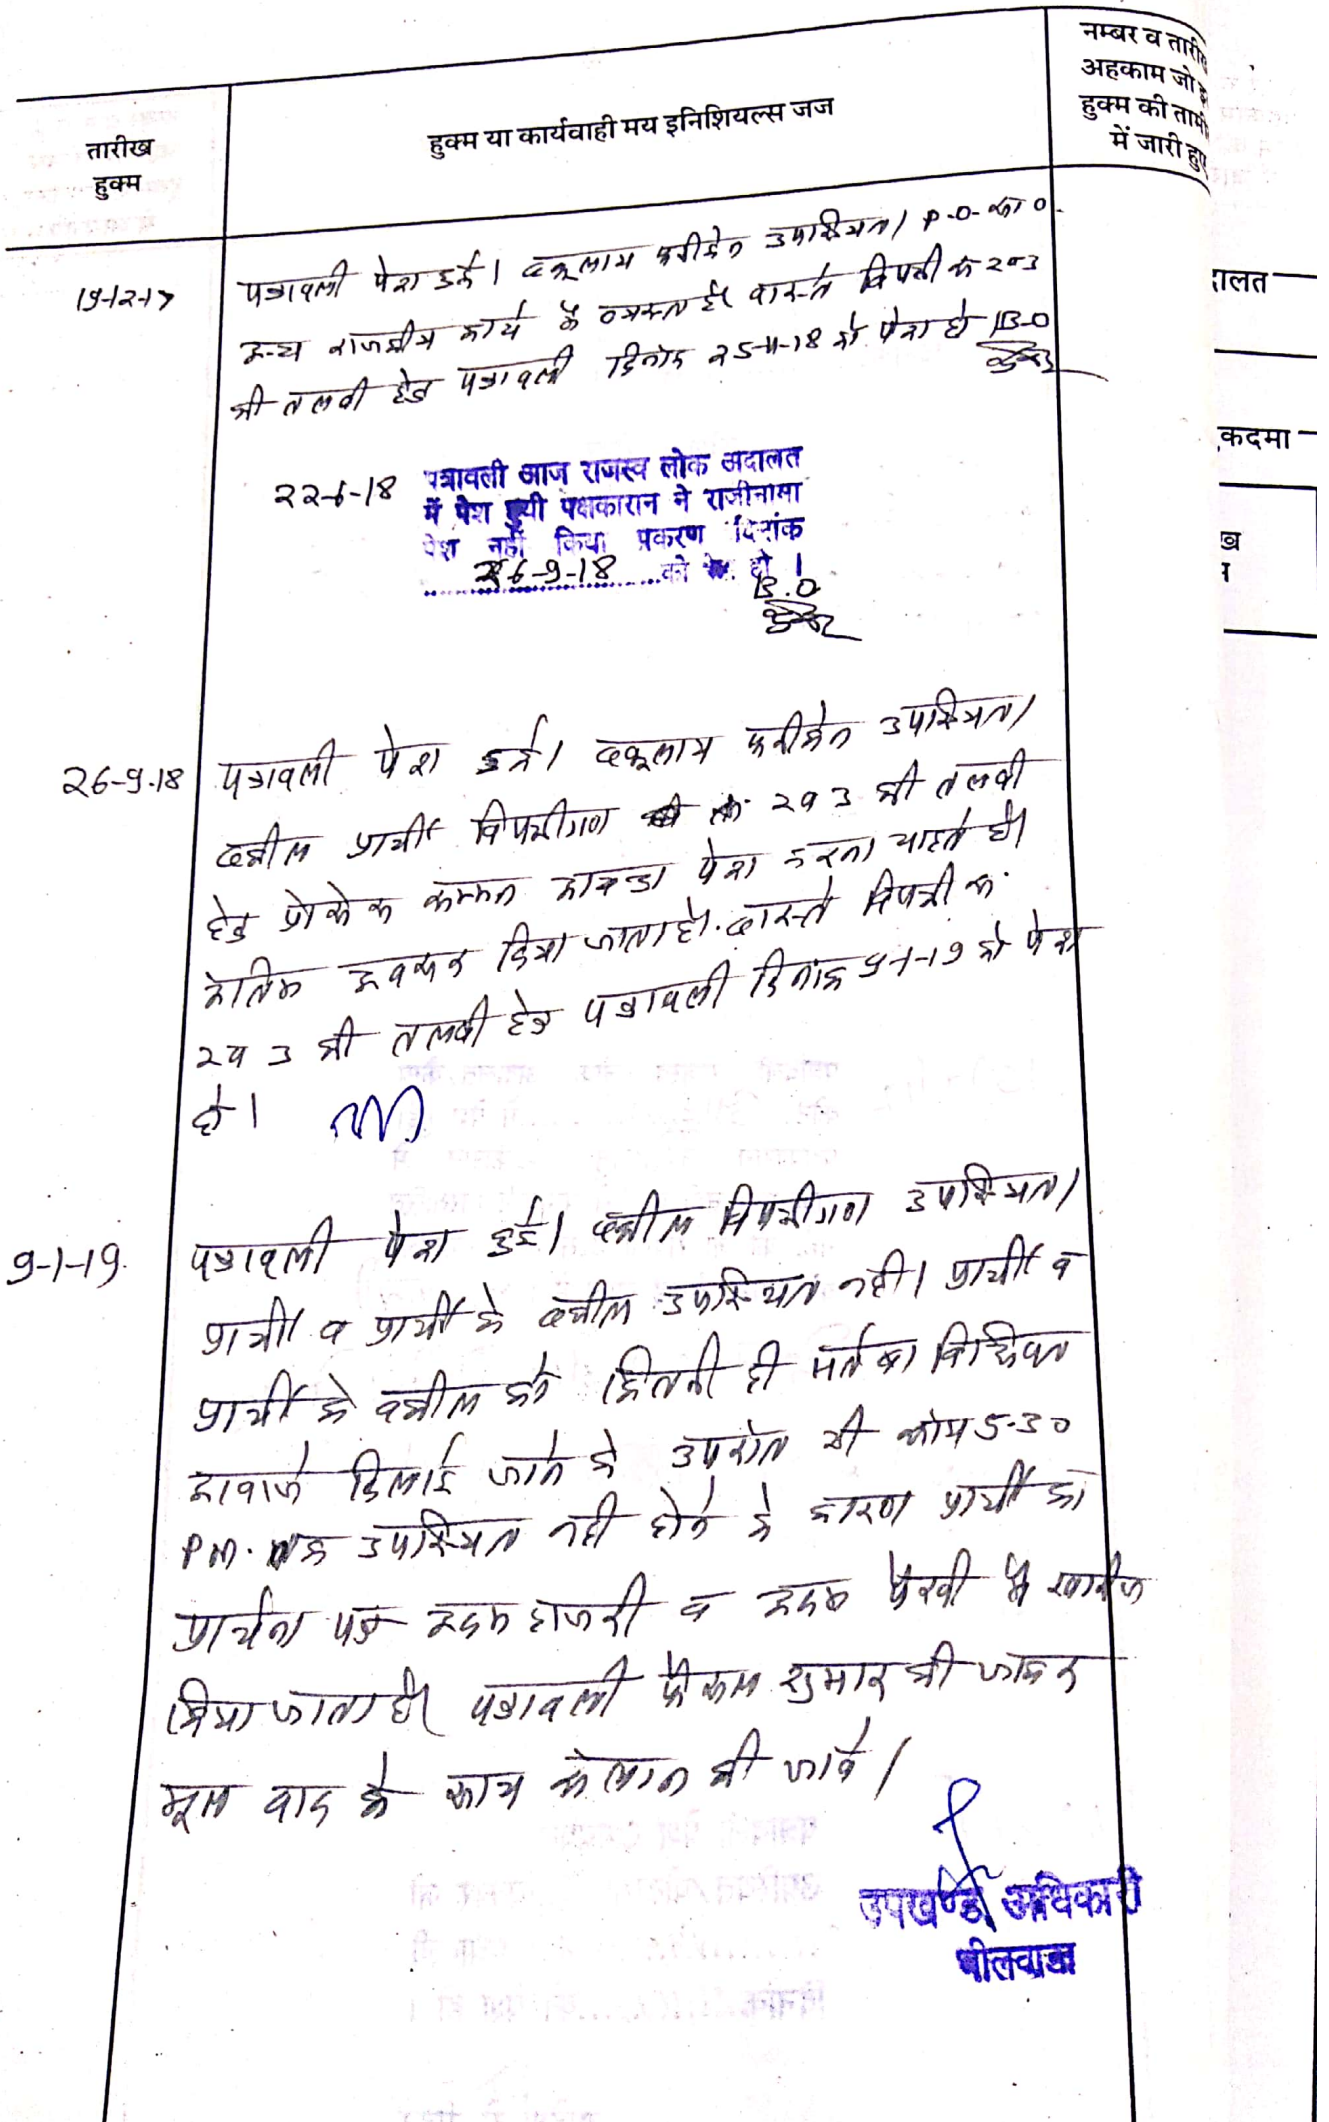 तारीख
हुक्म
हुक्म या कार्यवाही मय इनिशियल्स जज
नम्बर व तारी
अहकाम जो
हुक्म की तामी
में जारी हु
19-12-17
पत्रावली पेश हुई। वकूलाय फरीकेन उपस्थित। P.O. का०
अन्य राजकीय कार्य में व्यस्त है। वास्ते विपक्षी क 2व3
की तलबी हेतु पत्रावली दिनांक 25-4-18 को पेश हो B.O
22-6-18
पत्रावली आज राजस्व लोक अदालत
में पेश हुयी पक्षकारान ने राजीनामा
पेश नहीं किया प्रकरण दिनांक
26-9-18 को पेश हो।
B.O
26-9-18
पत्रावली पेश हुई। वकूलाय फरीकेन उपस्थित।
वकील प्रार्थी विपक्षीगण क 2व3 की तलबी
हेतु पेश करना चाहते है।
अंतिम अवसर दिया जाता है। वास्ते विपक्षी क.
2व3 की तलबी हेतु पत्रावली दिनांक 9-1-19 को पेश
हो।
9-1-19
पत्रावली पेश हुई। वकील विपक्षीगण उपस्थित।
प्रार्थी व प्रार्थी के वकील उपस्थित नही। प्रार्थी व
प्रार्थी के वकील को कितनी ही मर्तबा विधिवत
आवाजे दिलाई जाने के उपरांत भी सांय 5-30
PM. तक उपस्थित नही होने के कारण प्रार्थी का
प्रार्थना पत्र अदम हाजरी व अदम पैरवी में खारीज
किया जाता है। पत्रावली फैसल शुमार की जाकर
मूल वाद के साथ संलग्न की जावे।
उपखण्ड अधिकारी
भीलवाडा
ालत
कदमा